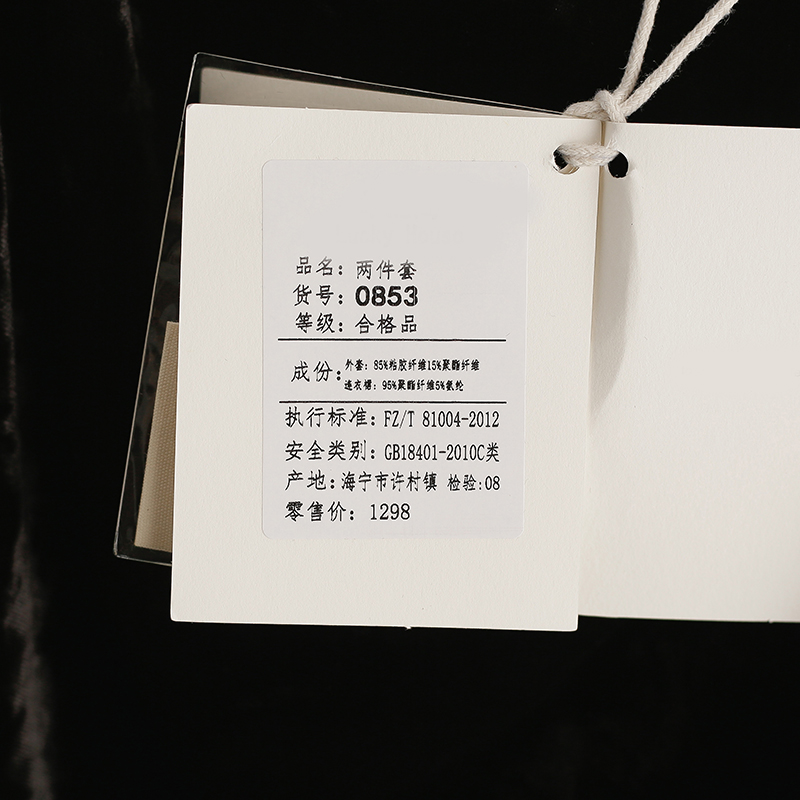 品名: 两件套
货号: 0853
等级: 合格品
成份: 外套: 85%粘胶纤维15%聚酯纤维
连衣裙: 95%聚酯纤维5%氨纶
执行标准: FZ/T 81004-2012
安全类别: GB18401-2010C类
产地: 海宁市许村镇 检验:08
零售价: 1298